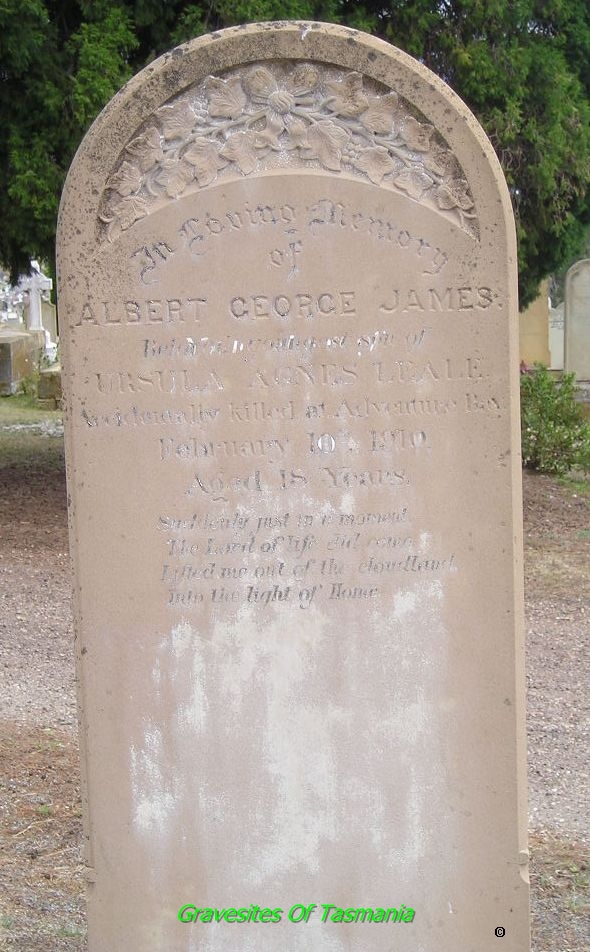 In Loving Memory
of
ALBERT GEORGE JAMES.
Beloved youngest son of
URSULA AGNES LEALE.
Accidentally killed at Adventure Bay.
February 10th 1910.
Aged 18 Years.
Suddenly just in a moment.
The Lord of life did come.
Lifted me out of the cloudland.
Into the light of Home.
Gravesites Of Tasmania
©